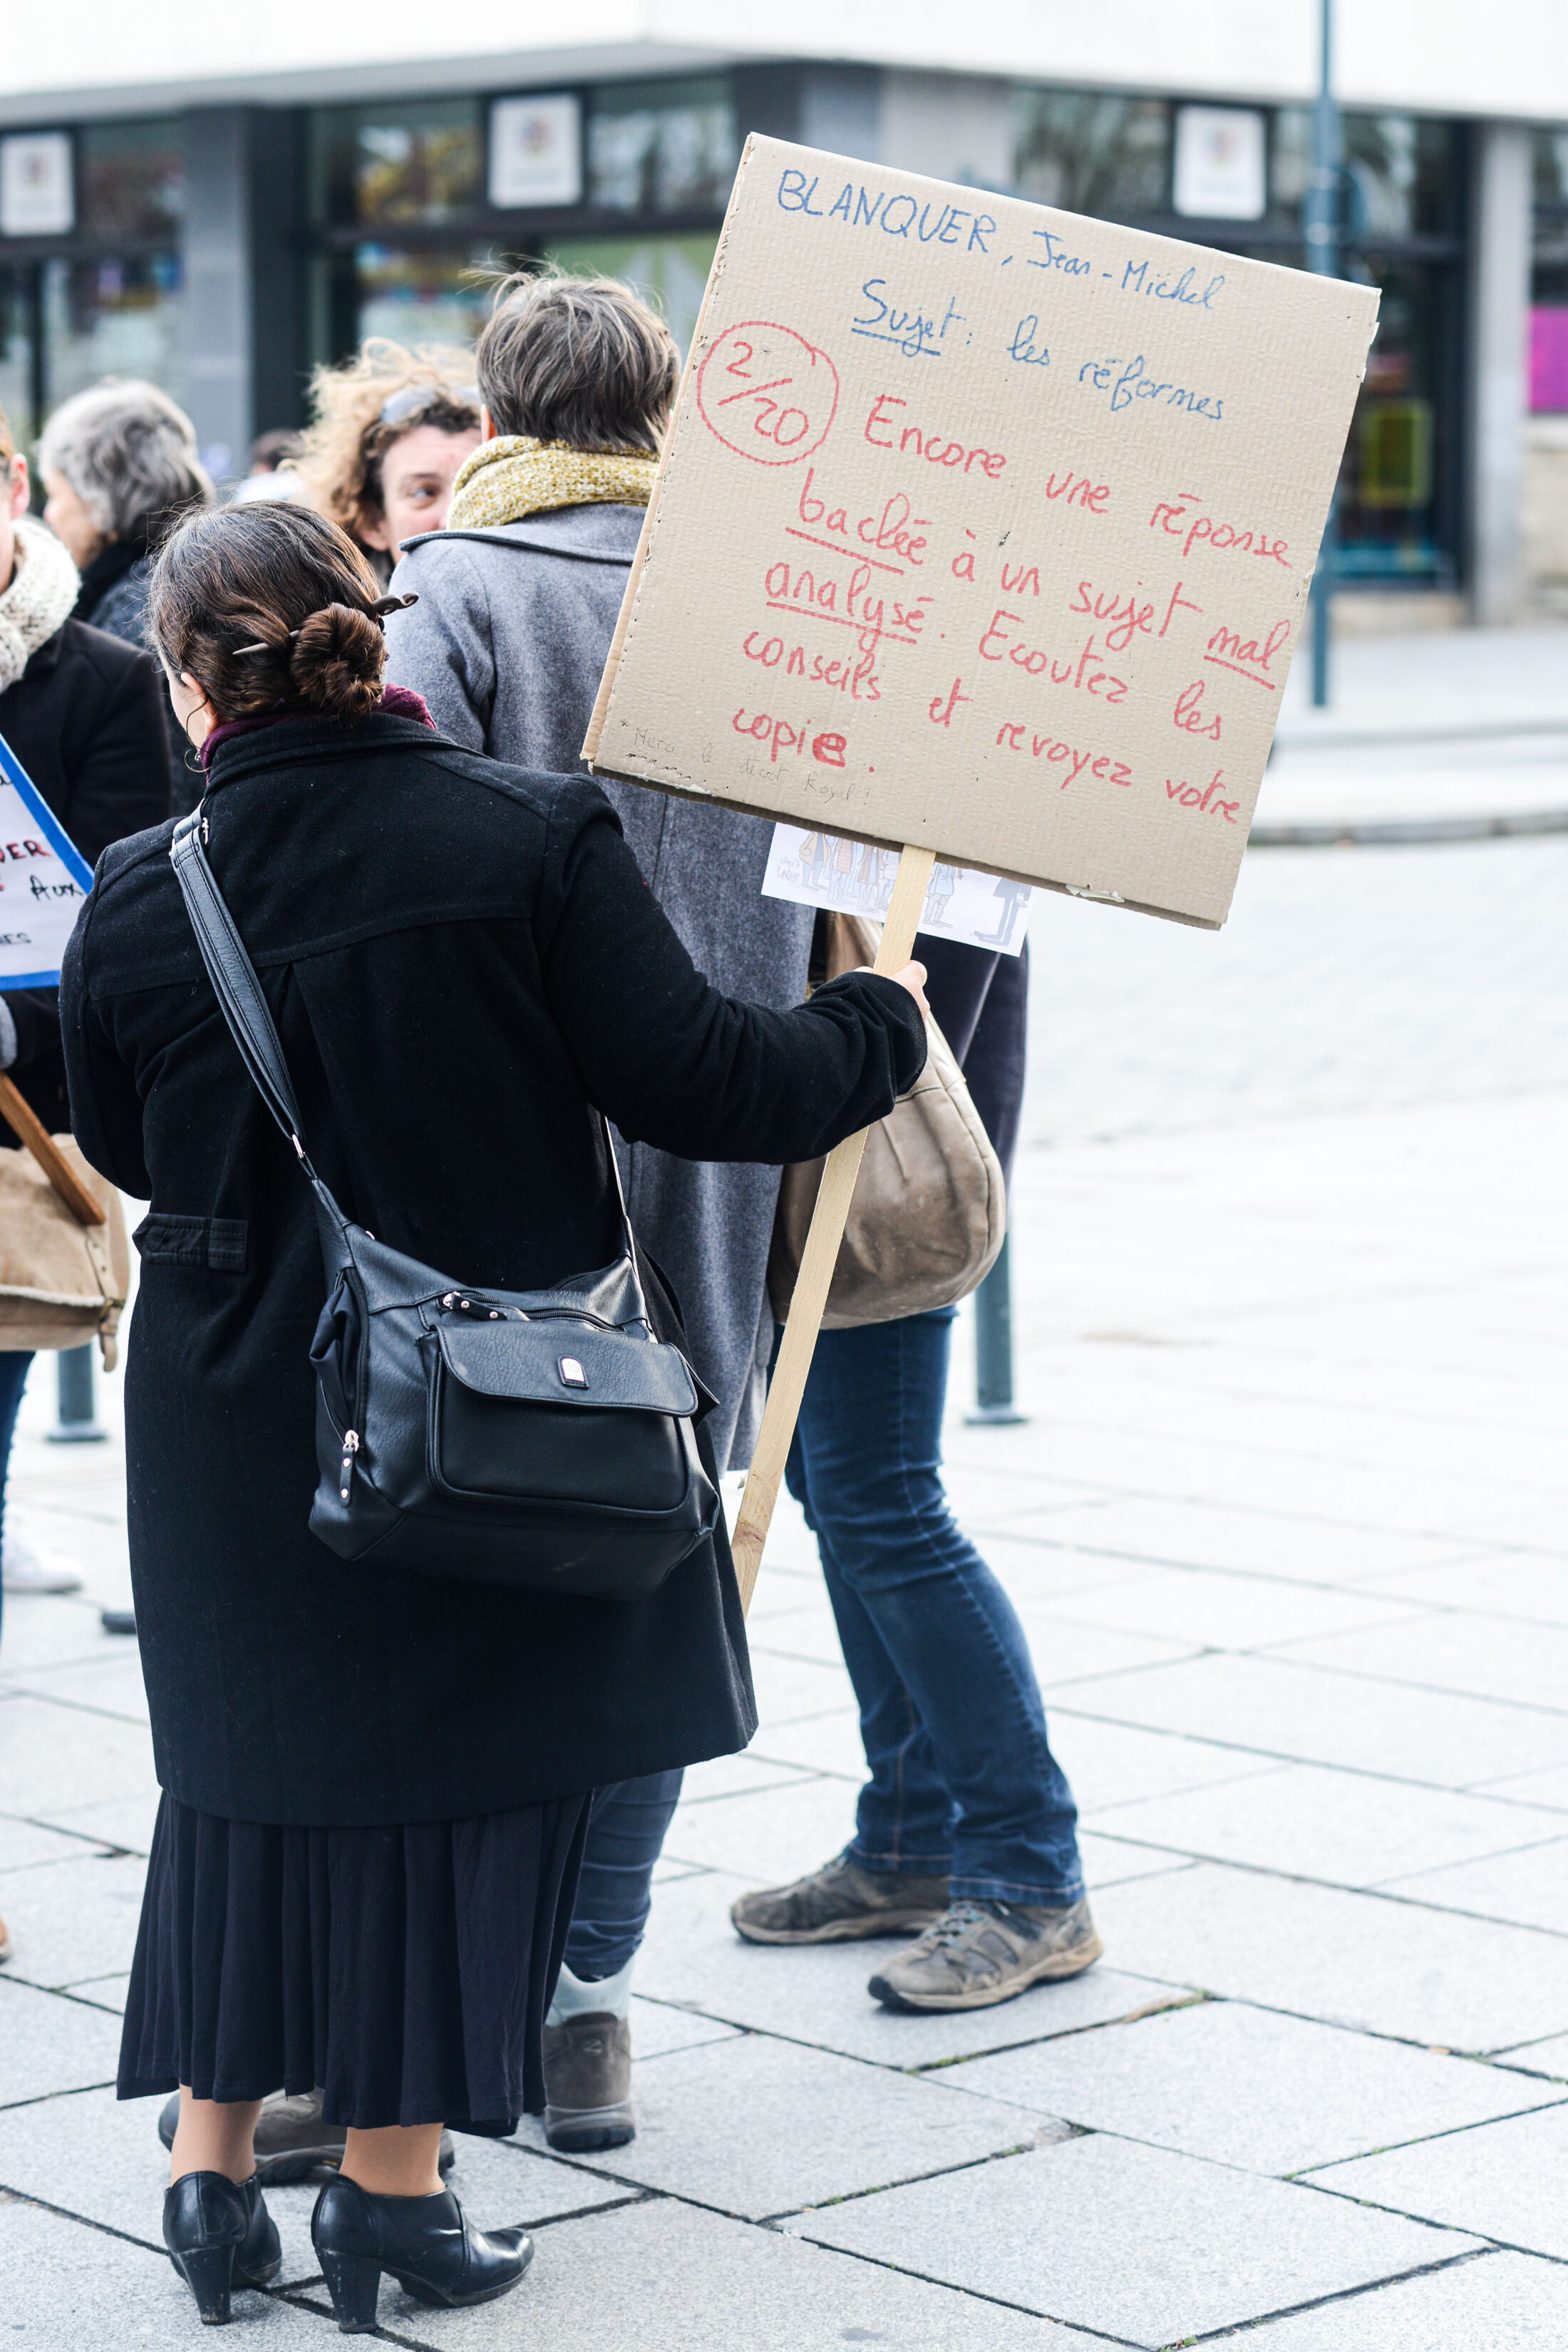 BLANQUER, Jean-Michel
Sujet: les réformes
2/20
Encore une réponse
baclée à un sujet mal
analysé. Ecoutez les
conseils et revoyez votre
copie.
* Merci le décret Royal!
UER
Aux